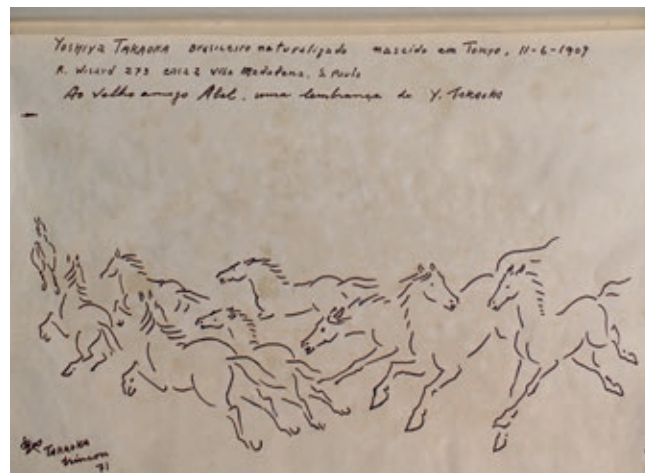 YOSHIYA TAKAOKA brasileiro naturalizado nascido em Tokyo, 11-6-1909
R. Wizard 273 casa 2 Villa Madalena, S. Paulo
Ao velho amigo Abel, uma lembrança do Y. TAKAOKA
TAKAOKA
71